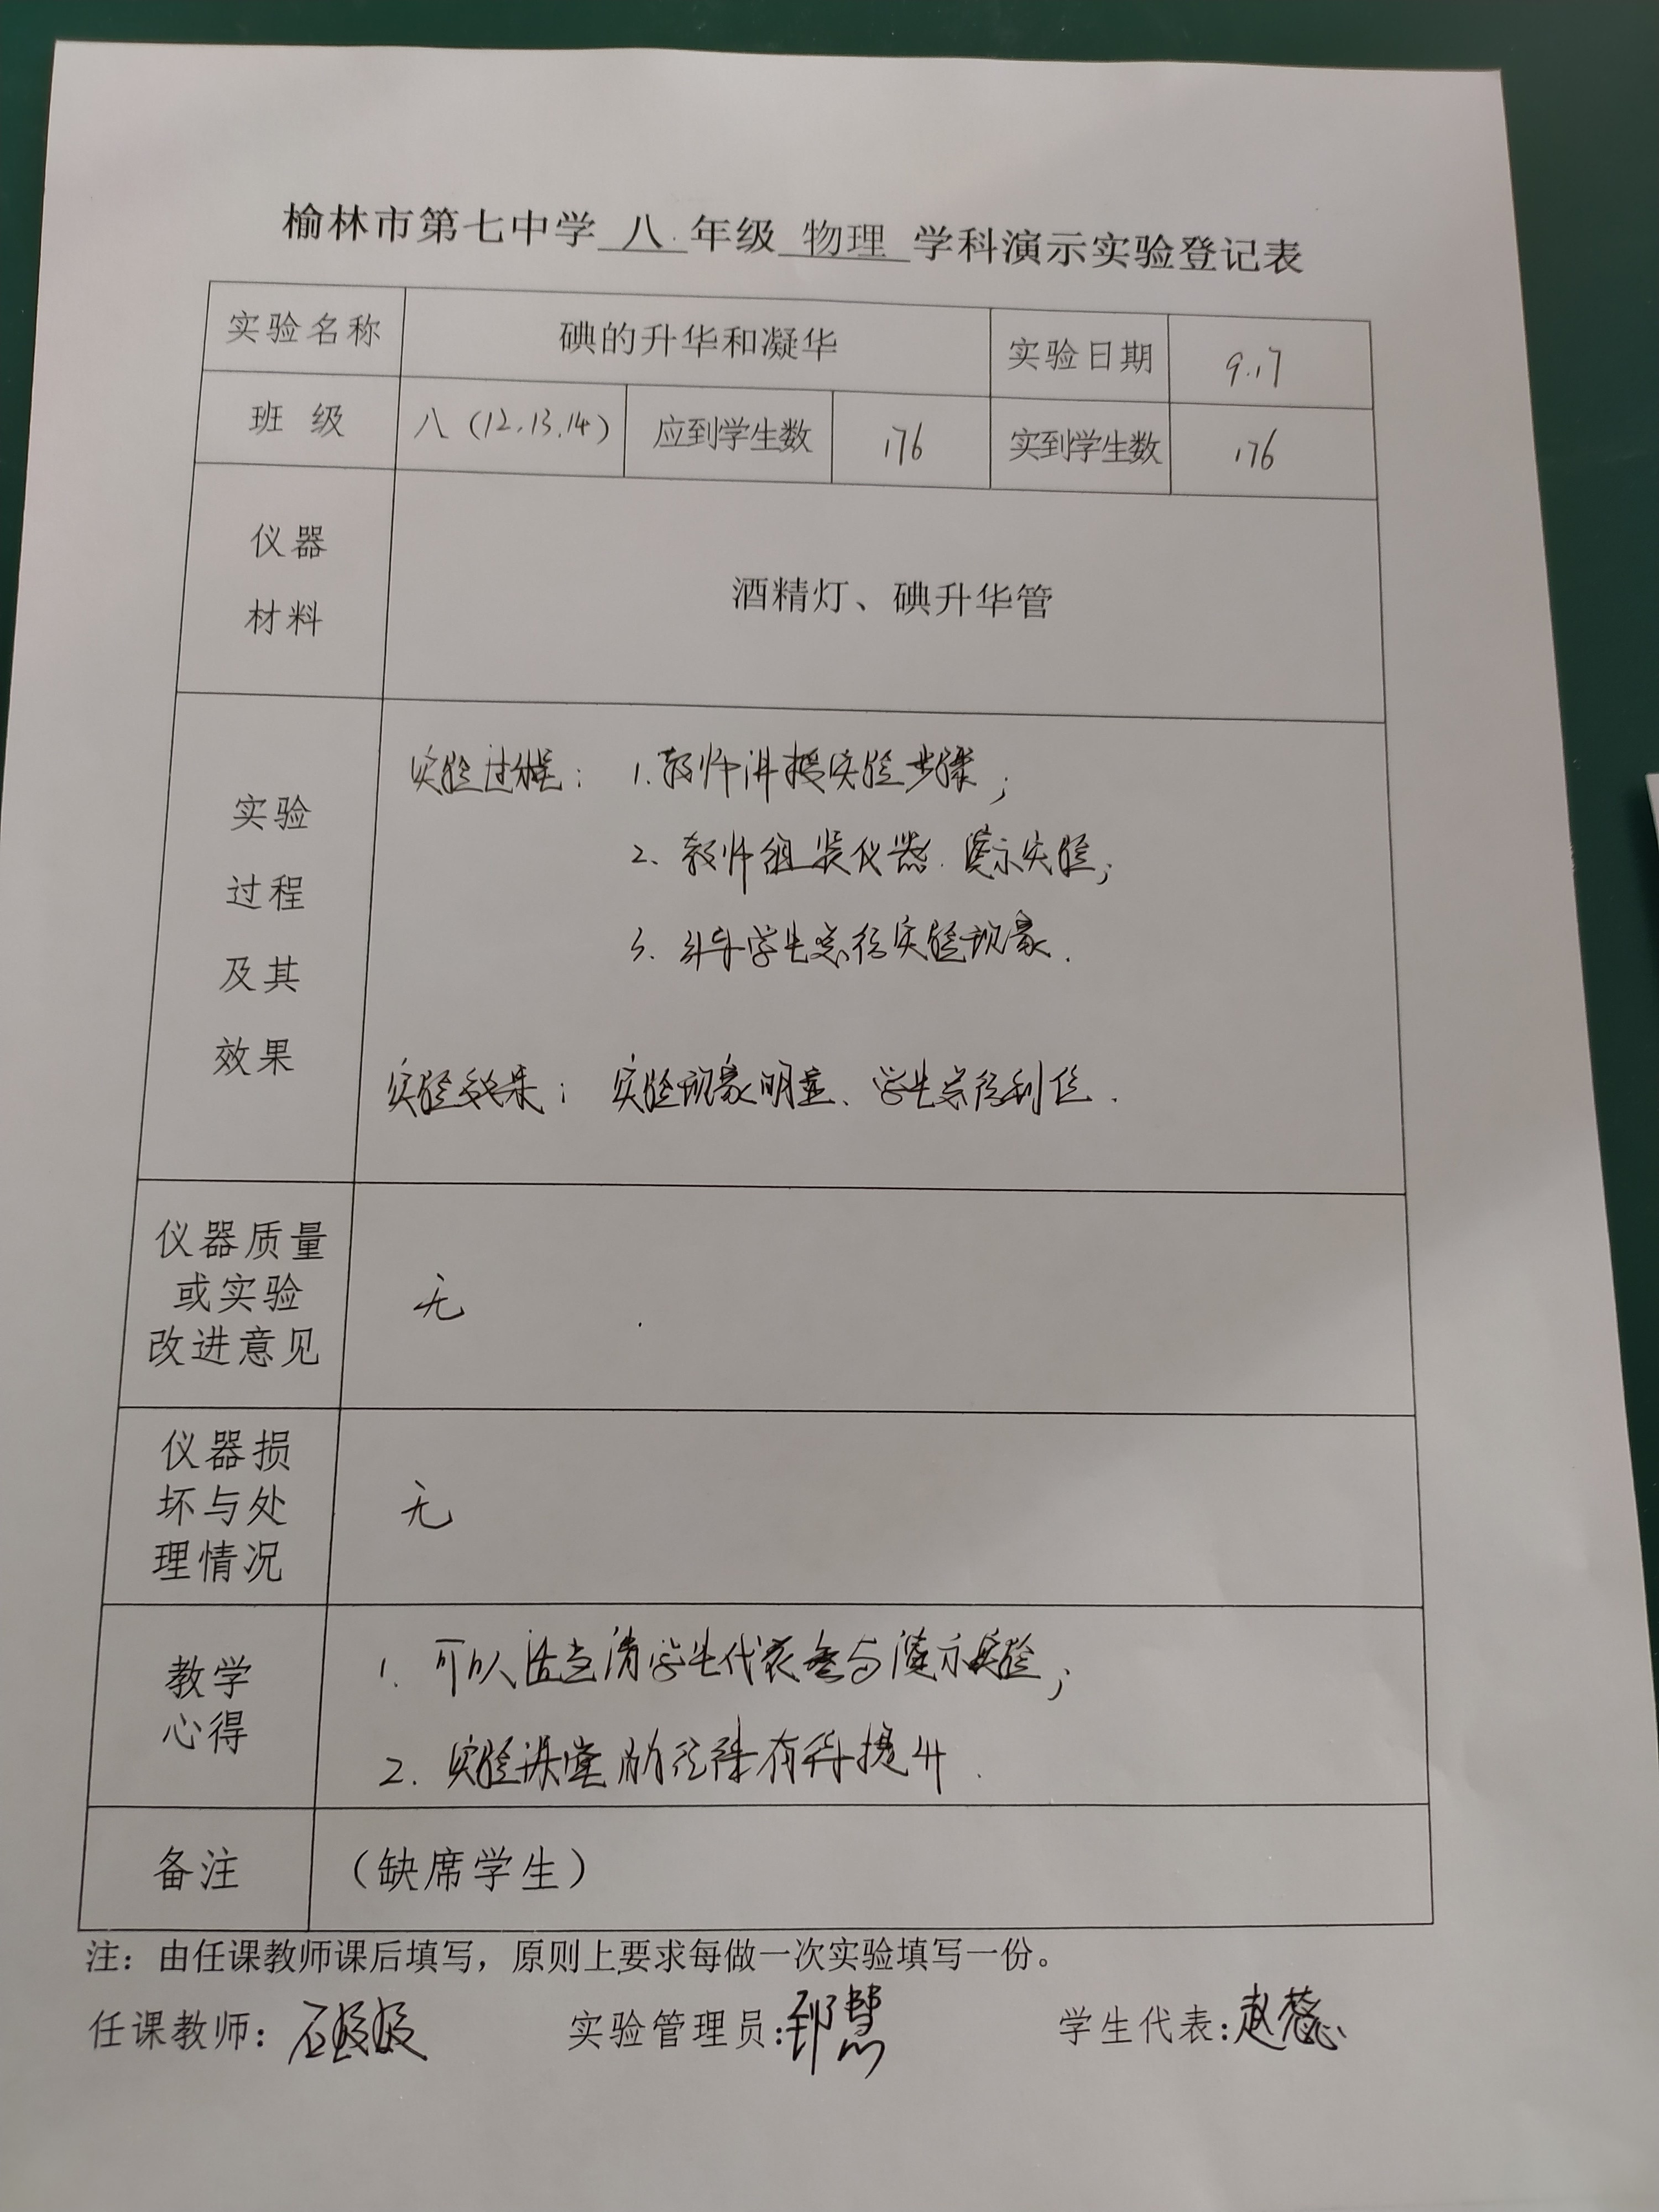 榆林市第七中学 八 年级 物理 学科演示实验登记表
实验名称 碘的升华和凝华 实验日期 9.17
班 级 八(12.13.14) 应到学生数 176 实到学生数 176
仪器
材料
酒精灯、碘升华管
实验
过程
及其
效果
实验过程: 1.教师讲授实验步骤;
2、教师组装仪器.演示实验;
3.学生总结实验现象.
实验效果: 实验现象明显、学生总结到位.
仪器质量
或实验
改进意见
无
仪器损
坏与处
理情况
无
教学
心得
1. 可以适当请学生代表参与演示实验;
2. 实验课堂的纪律有待提升.
备注 (缺席学生)
注:由任课教师课后填写,原则上要求每做一次实验填写一份。
任课教师: 实验管理员: 学生代表:赵蕊